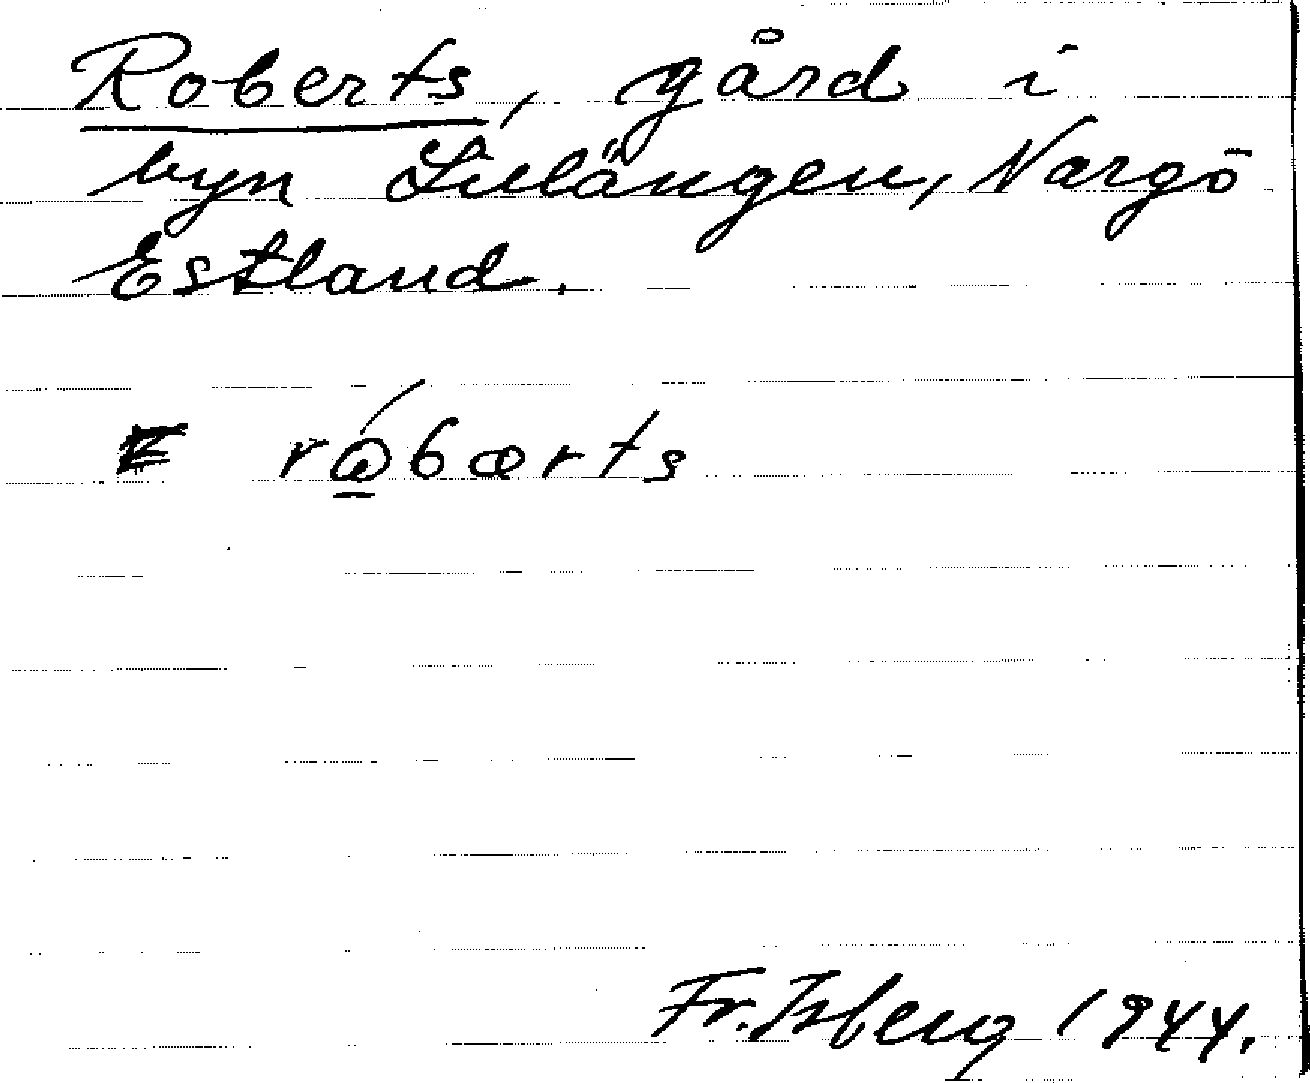 Roberts, gård i
byn Lillängen, Nargö
Estland.
råbærts
Fr. Isberg 1944.